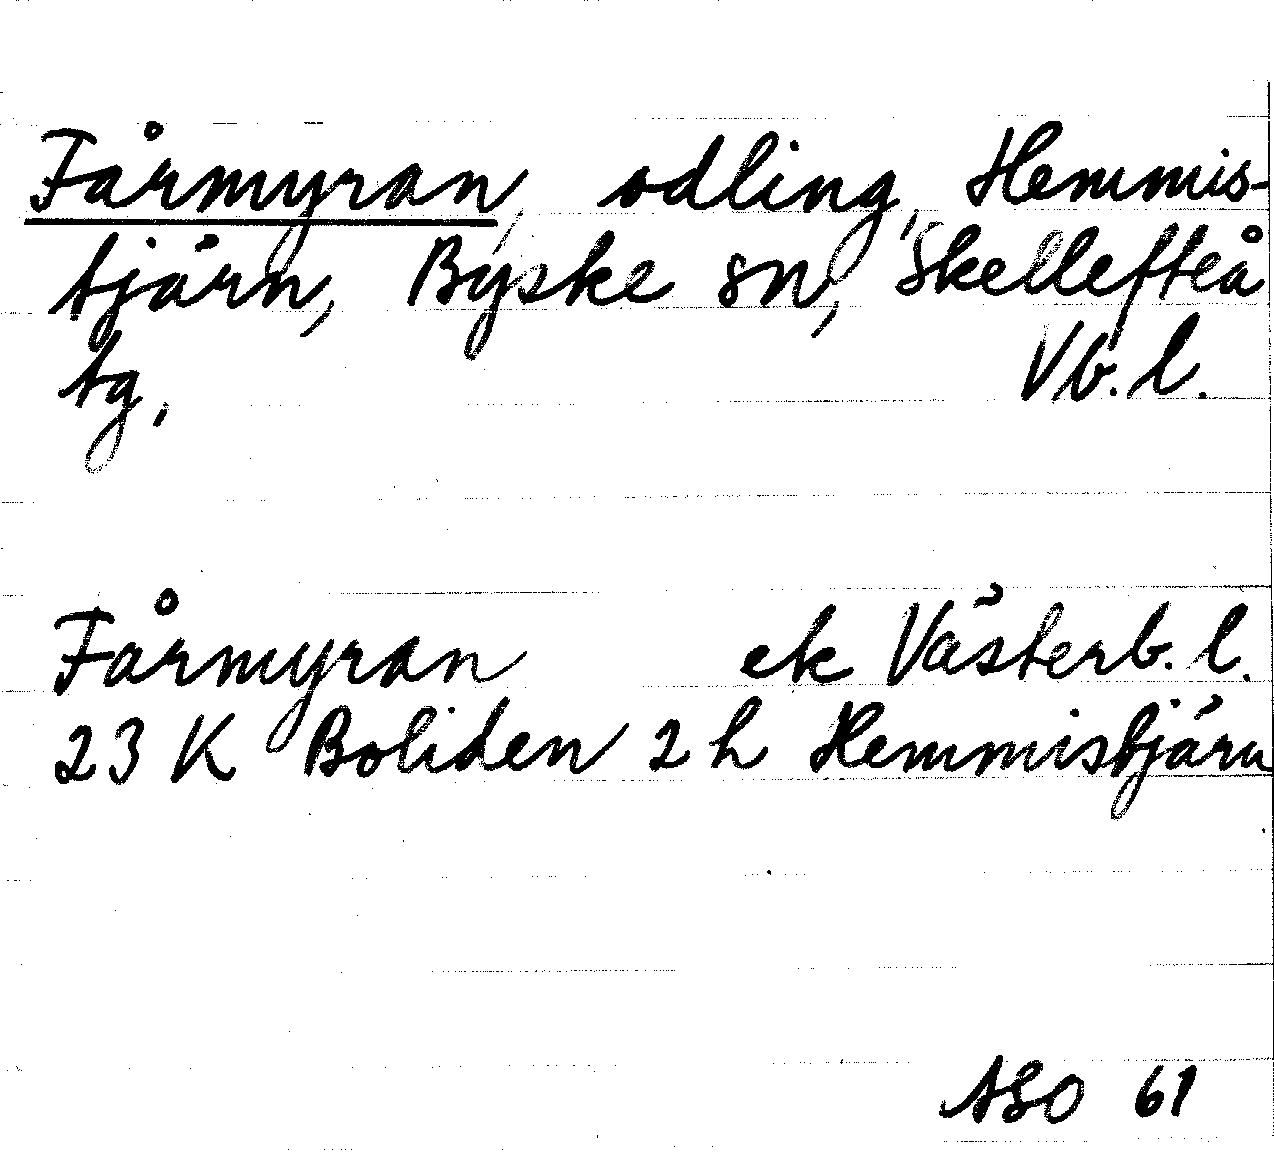 Fårmyran, odling, Hemmis-
tjärn, Byske sn, Skellefteå
tg, Vb. l.
Fårmyran ek Västerb. l.
23 K Boliden 2 h Hemmistjärn
ASO 61